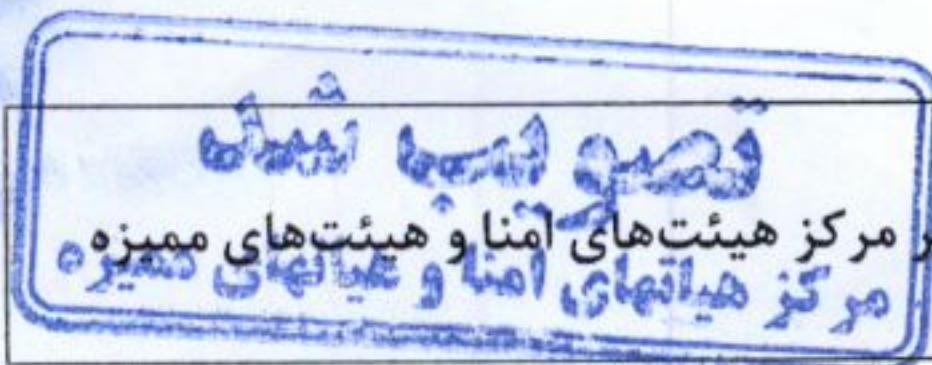 تصویب شد
ر مرکز هیئت‌های امنا و هیئت‌های ممیزه
مرکز هیاتهای امنا و هیاتهای ممیزه